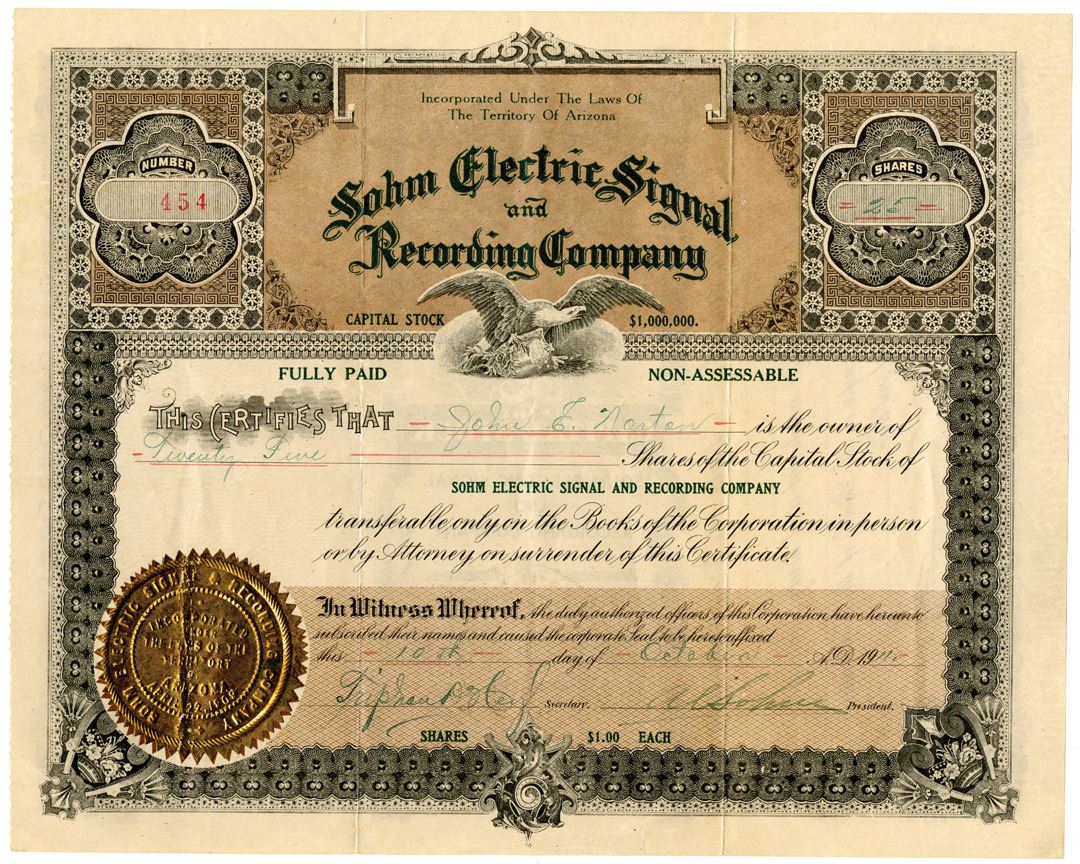 Incorporated Under The Laws Of
The Territory Of Arizona
NUMBER
454
SHARES
25
Sohm Electric Signal
and
Recording Company
CAPITAL STOCK $1,000,000.
FULLY PAID NON-ASSESSABLE
THIS CERTIFIES THAT John E. Norton is the owner of
Twenty Five Shares of the Capital Stock of
SOHM ELECTRIC SIGNAL AND RECORDING COMPANY
transferable only on the Books of the Corporation in person
or by Attorney on surrender of this Certificate.
In Witness Whereof, the duly authorized officers of this Corporation have hereunto
subscribed their names and caused the corporate Seal to be hereto affixed
this 10th day of October A.D. 19
Secretary. A C Sohm President.
SHARES $1.00 EACH
SOHM ELECTRIC SIGNAL & RECORDING COMPANY
INCORPORATED
THE LAWS OF THE
TERRITORY
OF
ARIZONA